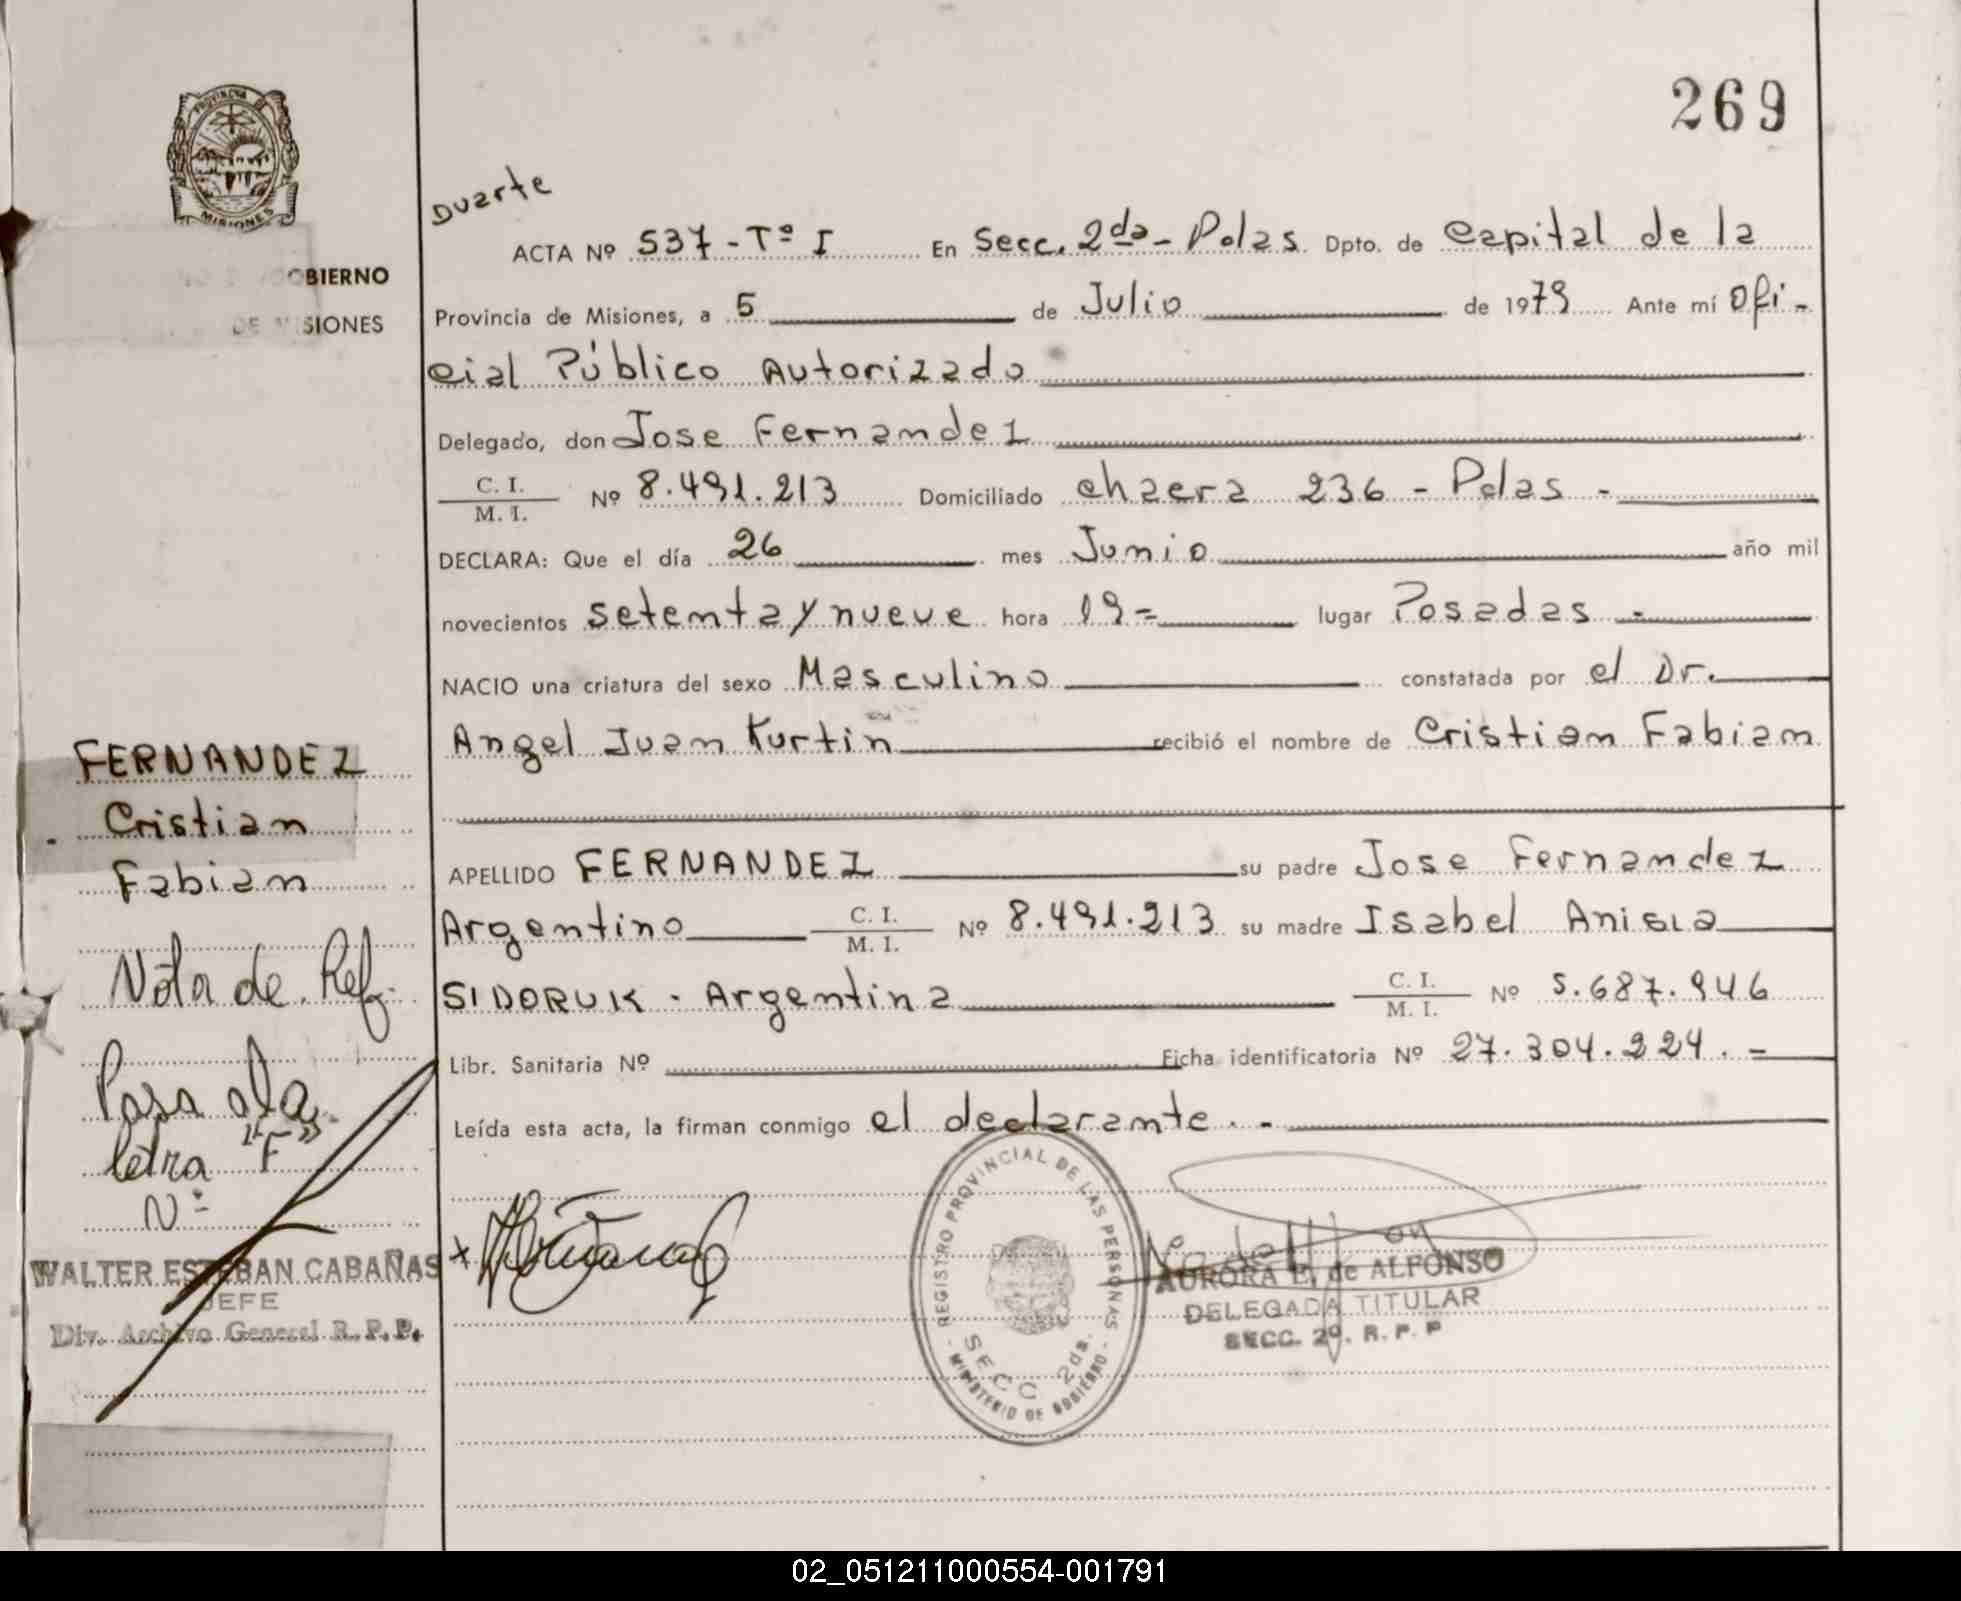 269
PROVINCIA DE
MISIONES
OBIERNO
DE MISIONES
Duarte
ACTA Nº 537-Tº I En Secc. 2da- Pdas. Dpto. de Capital de la
Provincia de Misiones, a 5 de Julio de 1979 Ante mí Ofi-
cial Público Autorizado
Delegado, don Jose Fernandez
C. I.
M. I. Nº 8.491.213 Domiciliado chacra 236 - Pdas -
DECLARA: Que el día 26 mes Junio año mil
novecientos setenta y nueve hora 19= lugar Posadas -
NACIO una criatura del sexo Masculino constatada por el Dr.
Angel Juan Kurtin recibió el nombre de Cristian Fabian
APELLIDO FERNANDEZ su padre Jose Fernandez
Argentino C. I.
M. I. Nº 8.491.213 su madre Isabel Anisia
SIDORUK - Argentina C. I.
M. I. Nº 5.687.946
Libr. Sanitaria Nº Ficha identificatoria Nº 27.304.224. -
Leída esta acta, la firman conmigo el declarante . -
FERNANDEZ
Cristian
Fabian
Nota de Ref.
Pasa a la
letra "F"
Nº
WALTER ESTEBAN CABAÑAS
JEFE
Div. Archivo General R.P.P.
REGISTRO PROVINCIAL DE LAS PERSONAS
SECC 2da.
- MINISTERIO DE GOBIERNO -
AURORA E. de ALFONSO
DELEGADA TITULAR
SECC. 2º. R. P. P
02_051211000554-001791